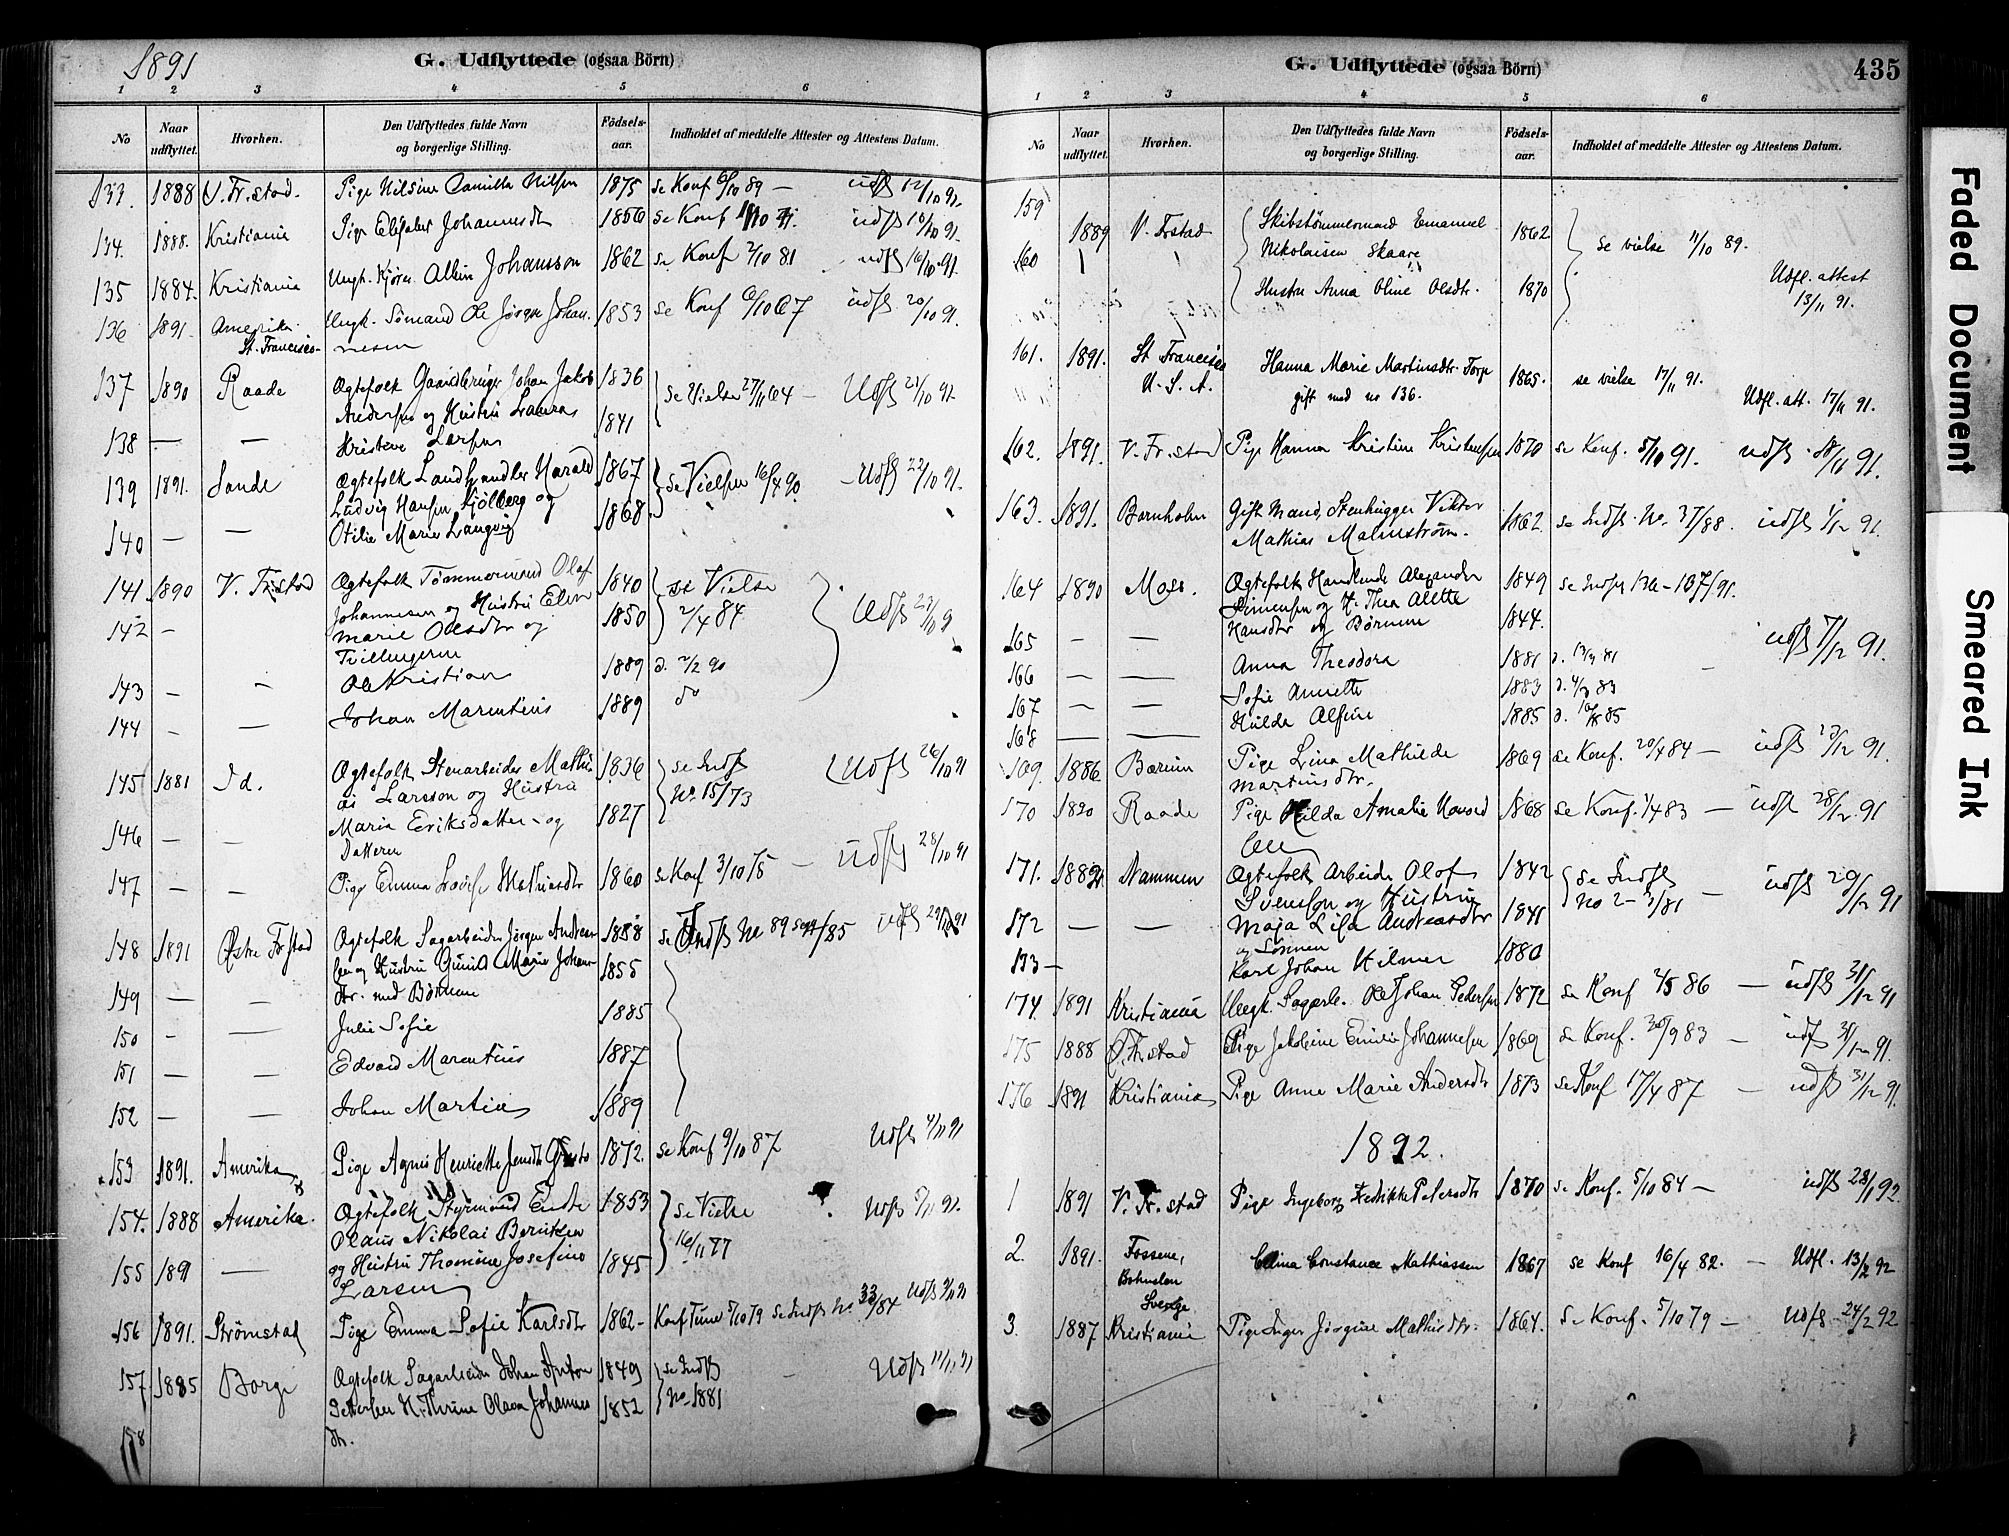 1891
G. Udflyttede (ogsaa Börn)
1 2 3 4 5 6
No
Naar udflyttet.
Hvorhen.
Den Udflyttedes fulde Navn og borgerlige Stilling.
Födsels-aar.
Indholdet af meddelte Attester og Attestens Datum.
133. 1888 V. Fr.stad. Pige Nilsine Camilla Nilsen 1875 se Konf 6/10 89 — udfl 12/10 91.
134. 1888. Kristiania Pige Johannesdtr 1856 se Konf udfl 16/10 91.
135 1884. Kristiania Ungk. Albin Johansson 1862 se Konf 2/10 81 udfl 16/10 91.
136 1891. Amerika Ungk. Sömand Ole Jörgen Johan- 1853 se Konf 6/10 67 udfl 20/10 91.
St. Francisco- nesen
137 1890 Raade Ægtefolk Gaardbruger Johan Jakob 1836 se Vielse 27/11 64 — Udfl 21/10 91
Andersen og Hustru Laura 1841
138 — — Kristine Larsen
139 1891. Sande Ægtefolk Landhandler Harald 1867 se Vielsen 16/4 90 — Udfl 22/10 91.
Ludvig Hansen Kjölberg og 1868
140 — — Otilie Marie Langvig
141 1890 V. Frstad Ægtefolk Tömmermand Olaf 1840 se Vielse
Johannesen og Hustru Elen 1850 2/4 84 Udfl 23/10 9
142 — Marie Olesdtr og
Tvillingerne
143 — — Ole Kristian 1889 d. 2/2 90
144 — — Johan Marentius 1889 do
145 1881 Id. Ægtefolk Stenarbeider Mathi- 1836 se Indfl Udfl 26/10 91
as Larsson og Hustru No 15/73
146 — — Maria Eriksdatter og 1827
Datteren
147 — — Pige Emma Lovise Mathiasdtr 1860 se Konf 3/10 75 — Udfl 28/10 91
148 1891 Østre Frstad Ægtefolk Sagarbeider Jörgen Andrea- 1858 se Indfl No 89 /85 udfl 29/10 91
sen og Hustru Gunild Marie Johans- 1855
149 — — dtr. med Börnene
150 — — Julie Sofie 1885
151 — — Edvard Marentius 1887
152 — — Johan Martin 1889
153 1891. Amerika Pige Agnes Henriette Jensdtr 1872. se Konf 9/10 87 Udfl 4/11 91
154. 1888 Amerika. Ægtefolk Styrmand 1853 se Vielse Udfl 7/11 91.
Olaus Nikolai Berntsen 16/11 77
155 1891 — og Hustru Thomine Josefine 1845
Larsen
156 1891. Strömstad Pige Emma Sofie Karlsdtr 1862- Konf Tune 5/10 79 se Indfl No. 33/84 Udfl 9/11 91
157 1885 Borge Ægtefolk Sagarbeider Johan Anton 1849 se Indfl — Udfl 11/11 91
Pettersen H. Thrine Olava Johannes 1852 No. 1881
158 dtr.
G. Udflyttede (ogsaa Börn)
435
1 2 3 4 5 6
No
Naar udflyttet.
Hvorhen.
Den Udflyttedes fulde Navn og borgerlige Stilling.
Födsels-aar.
Indholdet af meddelte Attester og Attestens Datum.
159 1889 V. Frstad Skibstömmermand Emanuel 1862 se vielse 11/10 89.
160 Nikolaisen Skaare
Hustru Anna Oline Olsdtr. 1870 Udfl. attest 13/11 91.
161. 1891. St Francisco Hanna Marie Martinsdtr Torp 1865. se vielse 17/11 91.
U. S. A. gift med no 136. Udfl. att. 17/11 91.
162. 1891. V. Fr.stad Pige Hanna Kristine Kristensen 1870 se Konf. 5/10 91. udfl. 18/11 91.
163. 1891. Bornholm Gift Mand, Stenhugger Viktor 1862 se Indfl. No. 37/88. udfl 1/12 91.
Mathias Malmström.
164 1890 Moss. Ægtefolk Handlende Alexander 1849 se Indfl 136-137/91.
Simensen og H. Thea Alette 1844.
165 — — Hansdtr og Börnene udfl 7/12 91.
166 — — Anna Theodora 1881 d. 13/3 81
167 — — Sofie Annette 1883 d. 4/3 83
168 — — Hulda Alfine 1885 d. 16/8 85
169. 1886 Bærum Pige Lina Mathilde 1869 se Konf. 20/4 84 — udfl 23/12 91.
Martinsdtr.
170 1890 Raade Pige Hilda Amalie 1868 se Konf. 1/4 83 — udfl 28/12 91
171. Nammen Ægtefolk Arbeider Olof 1842 se Indfl
Svenson og Hustru No 2- /81 — udfl 29/12 91
172 — — Maja Lisa Andreasdtr 1841
og Sönnen
173 — Karl Johan Hilmer 1880
174. 1891 Kristiania Ungk. Sagarb. Ole Johan Pedersen 1872 se Konf 2/5 86 — udfl 31/12 91
175 1888 Ø. Frstad Pige Jakobine Emilie Johannesen 1869 se Konf. 30/9 83 — udfl 31/12 91.
176 1891 Kristiania Pige Anne Marie Andersdtr 1873 se Konf 17/4 87 — udfl 31/12 91.
1892.
1 1891 V. Fr.stad Pige Ingeborg Fredrikke Petersdtr 1870 se Konf. 5/10 84 — udfl 28/1 92.
2. 1891. Fossene, Elina Constance Mathiassen 1867 se Konf 16/4 82. — Udfl. 13/2 92
Bohuslen
Sverge
3. 1887 Kristiania Pige Inger Jörgine Mathisdtr. 1864. se Konf. 5/10 79 — Udfl. 24/2 92
Faded Document
Smeared Ink